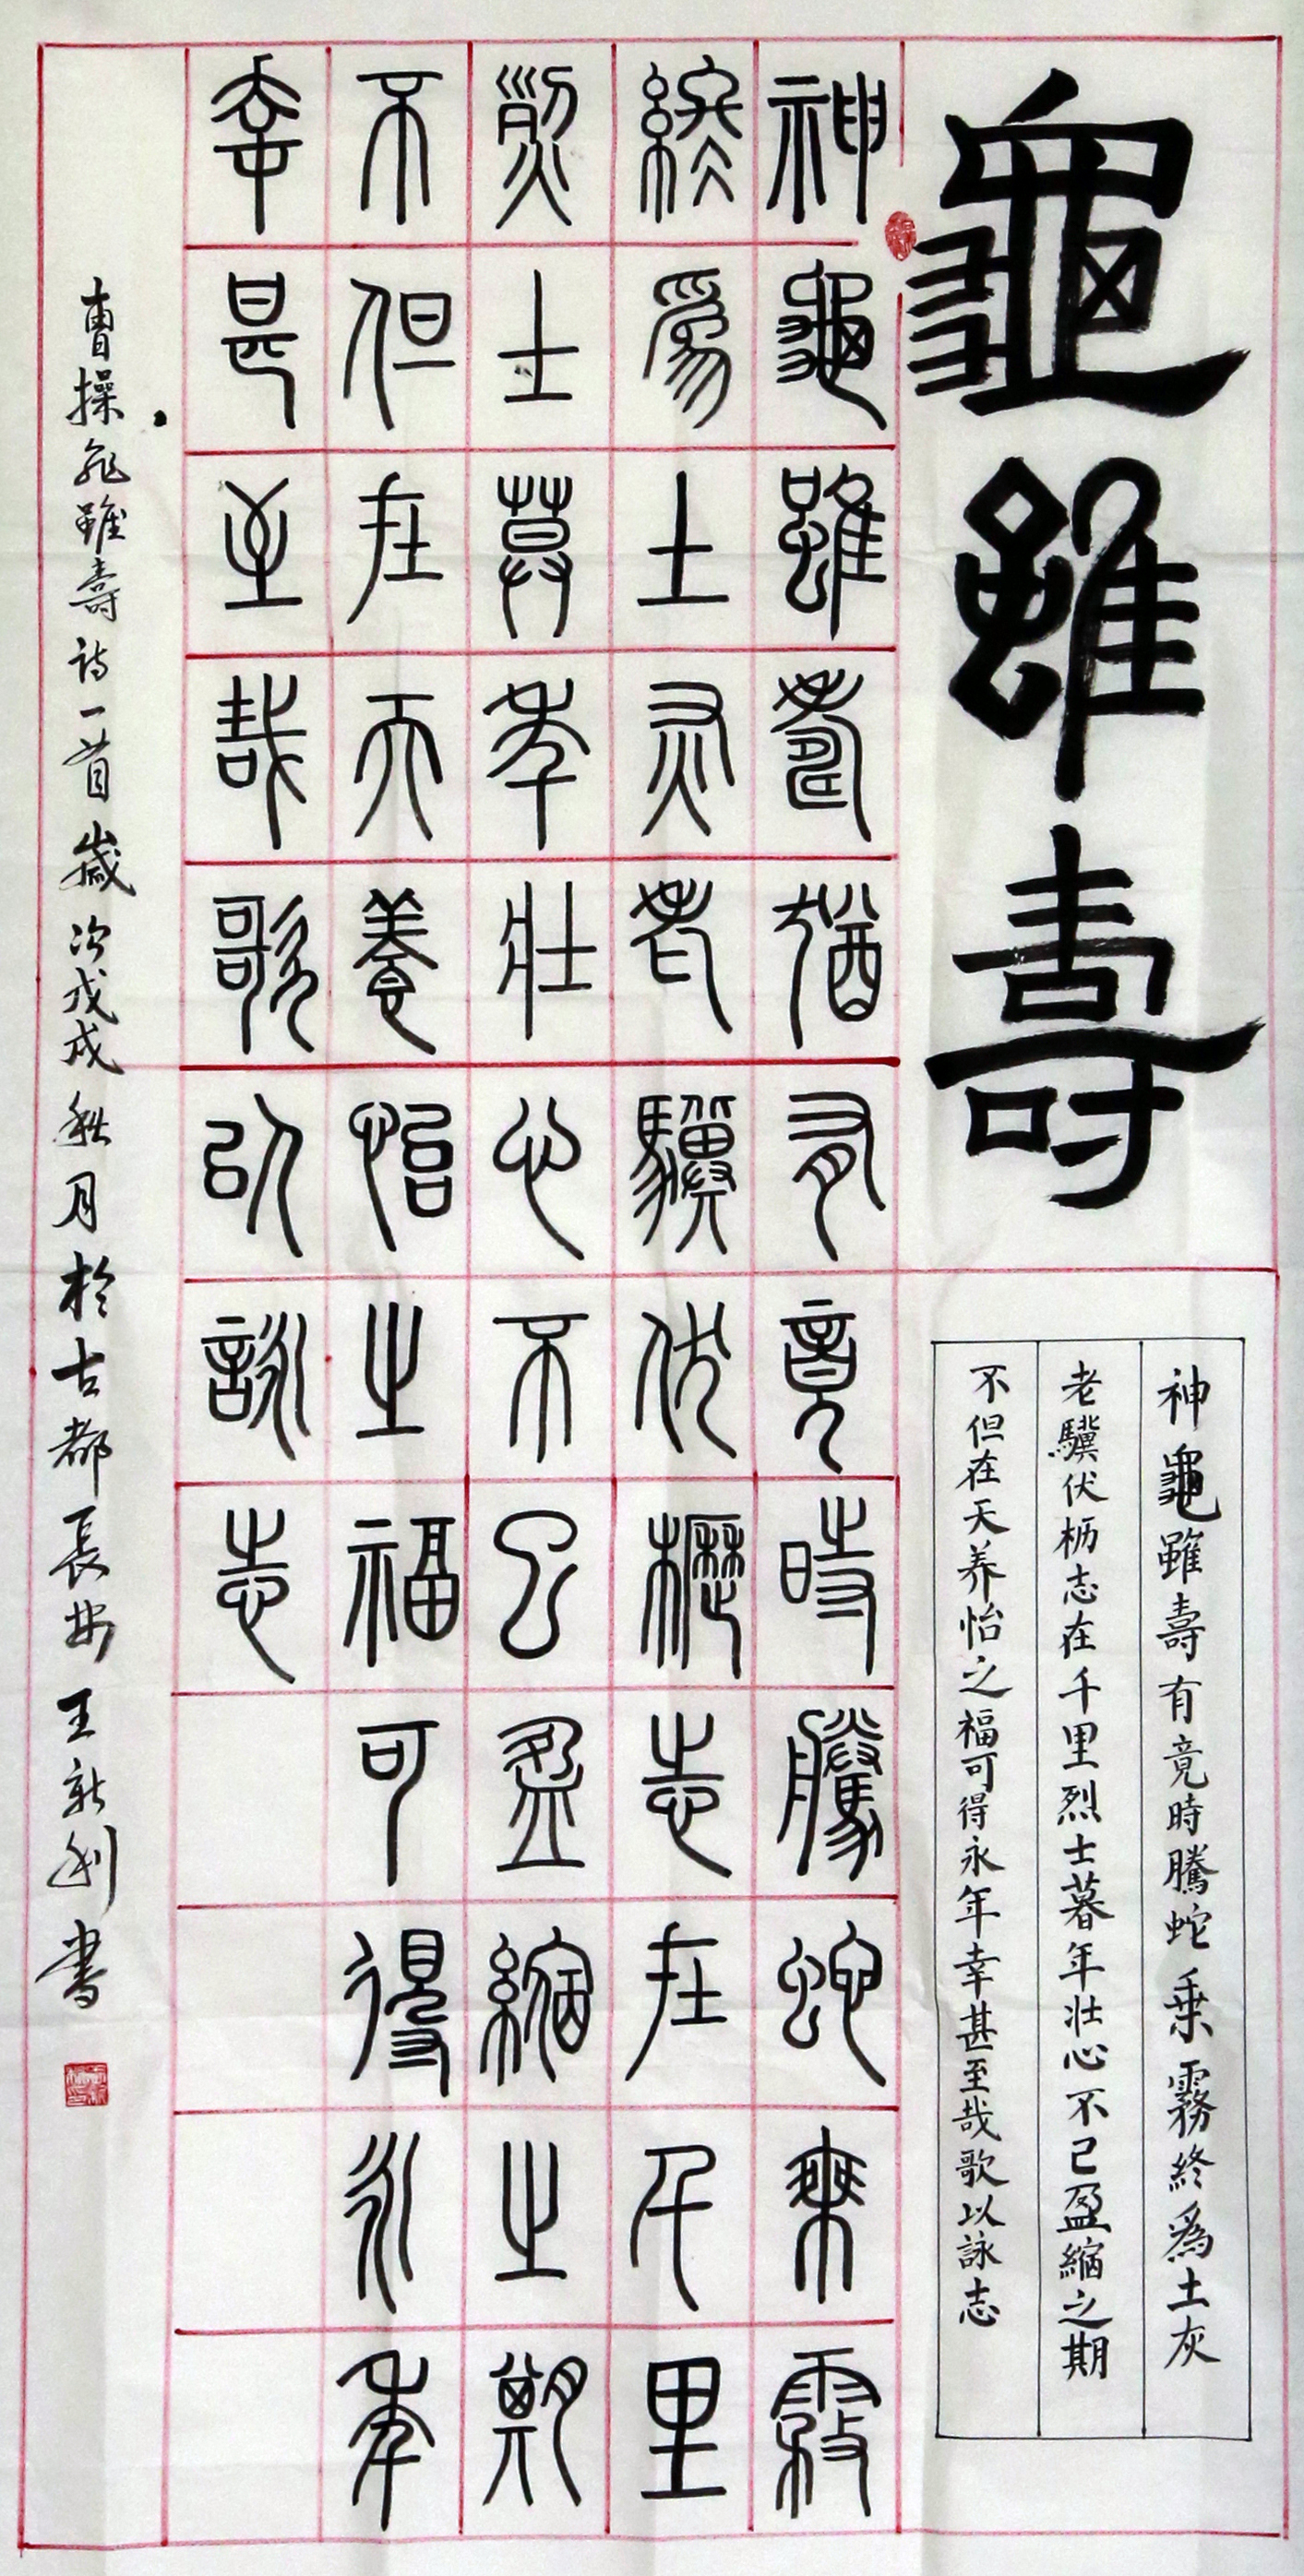 龜雖壽
神龜雖壽有竟時騰蛇乗霧終爲土灰
老驥伏枥志在千里烈士暮年壮心不已盈縮之期
不但在天养怡之福可得永年幸甚至哉歌以詠志
神龜雖壽猶有竟時騰蛇乘霧
終爲土灰老驥伏櫪志在千里
烈士暮年壯心不已盈縮之期
不但在天養怡之福可得永年
幸甚至哉歌以詠志
曹操龟雖壽诗一首歲次戊戌秋月於古都長安王新利書